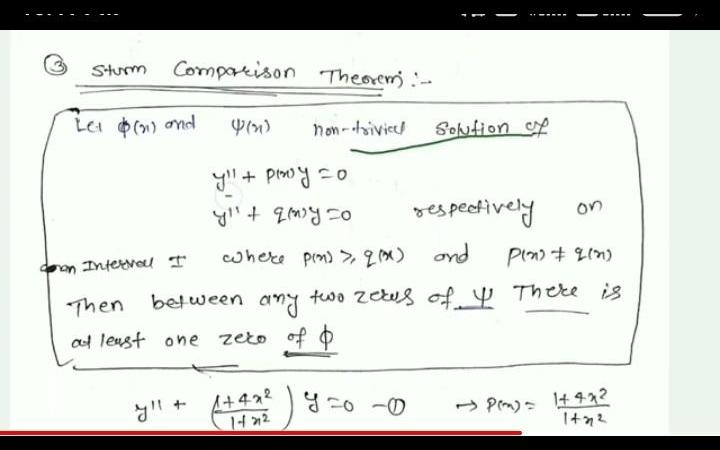 ③ Sturm Comparison Theorem :-
Let ϕ(x) and ψ(x) non-trivial Solution of
y'' + p(x)y = 0
y'' + q(x)y = 0 respectively on
an Interval I where p(x) ⩾ q(x) and p(x) ≠ q(x)
Then between any two zeros of ψ There is
at least one zero of ϕ
y'' + (1+4x²/1+x²) y = 0 -① → p(x) = 1+4x²/1+x²